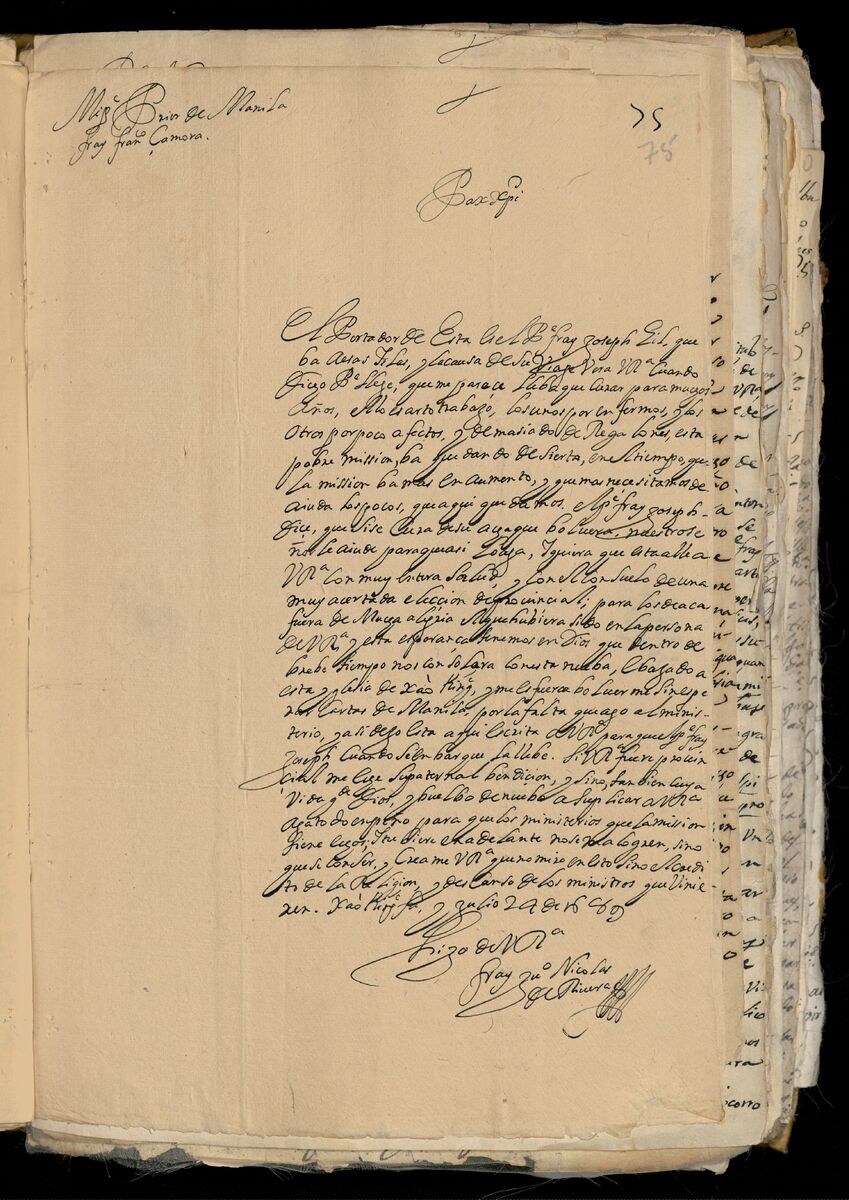 Mig.e Prior de Manila
fray fran.co Çamora.
75
75
Pax Xpi
El Portador de Esta es el P.e fray Joseph Gil, que
ba a esas Islas, y la causa de su viaje Vera VRa Cuando
Dicho P.e llege, que me parece lleba que curar para muchos
Años, Harto trabajo, los unos por enfermos, y los
otros por poco afectos, y demasiado de Regalones, esta
pobre mission, ba quedando desierta, en el tiempo, que
la mission ba mas en aumento, y que mas necesitamos de
aiuda los pocos, que aqui quedamos. el P.e fray Joseph
Dice, que si se Cura de su achaque bolvera, nuestro se
ñor le aiude para que asi lo haga, y quiera que esta alle a
VRa con muy entera Salud, y con el Consuelo de una
muy acertada eleccion de provincial; para los de aca
fuera de Mucha alegria el que hubiera sido en la persona
de VRa, y esta esperança tenemos en Dios que dentro de
brebe tiempo nos consolara con esta nueba, E bajado a
esta yglesia de Xào King, y me es fuerça bolverme sin espe
rar Cartas de Manila, por la falta que ago al minis-
terio, y asi dejo esta aqui escrita a VRa para que el P.e fray
Joseph Cuando se enbarque la llebe. Si VRa fuere provin
cial me eche su paternal bendicion, y sino, tambien cuya
Vida g.de Dios, y buelbo de nuebo a suplicar a VRa
aga todo enpeño para que los ministerios que la mission
tiene echos, y tubiere en adelante no se malogren, sino
que se conserben, y Creame VRa que no miro en esto sino el credi
to de la Religion, y descanso de los ministros que vinie-
ren. Xào King fu, y Julio 24 de 1689
Hijo de VRa
fray Ju.o Nicolas
de Rivera